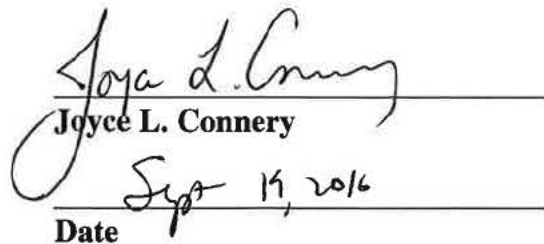 Joyce L. Connery
Joyce L. Connery
Sept 19, 2016
Date